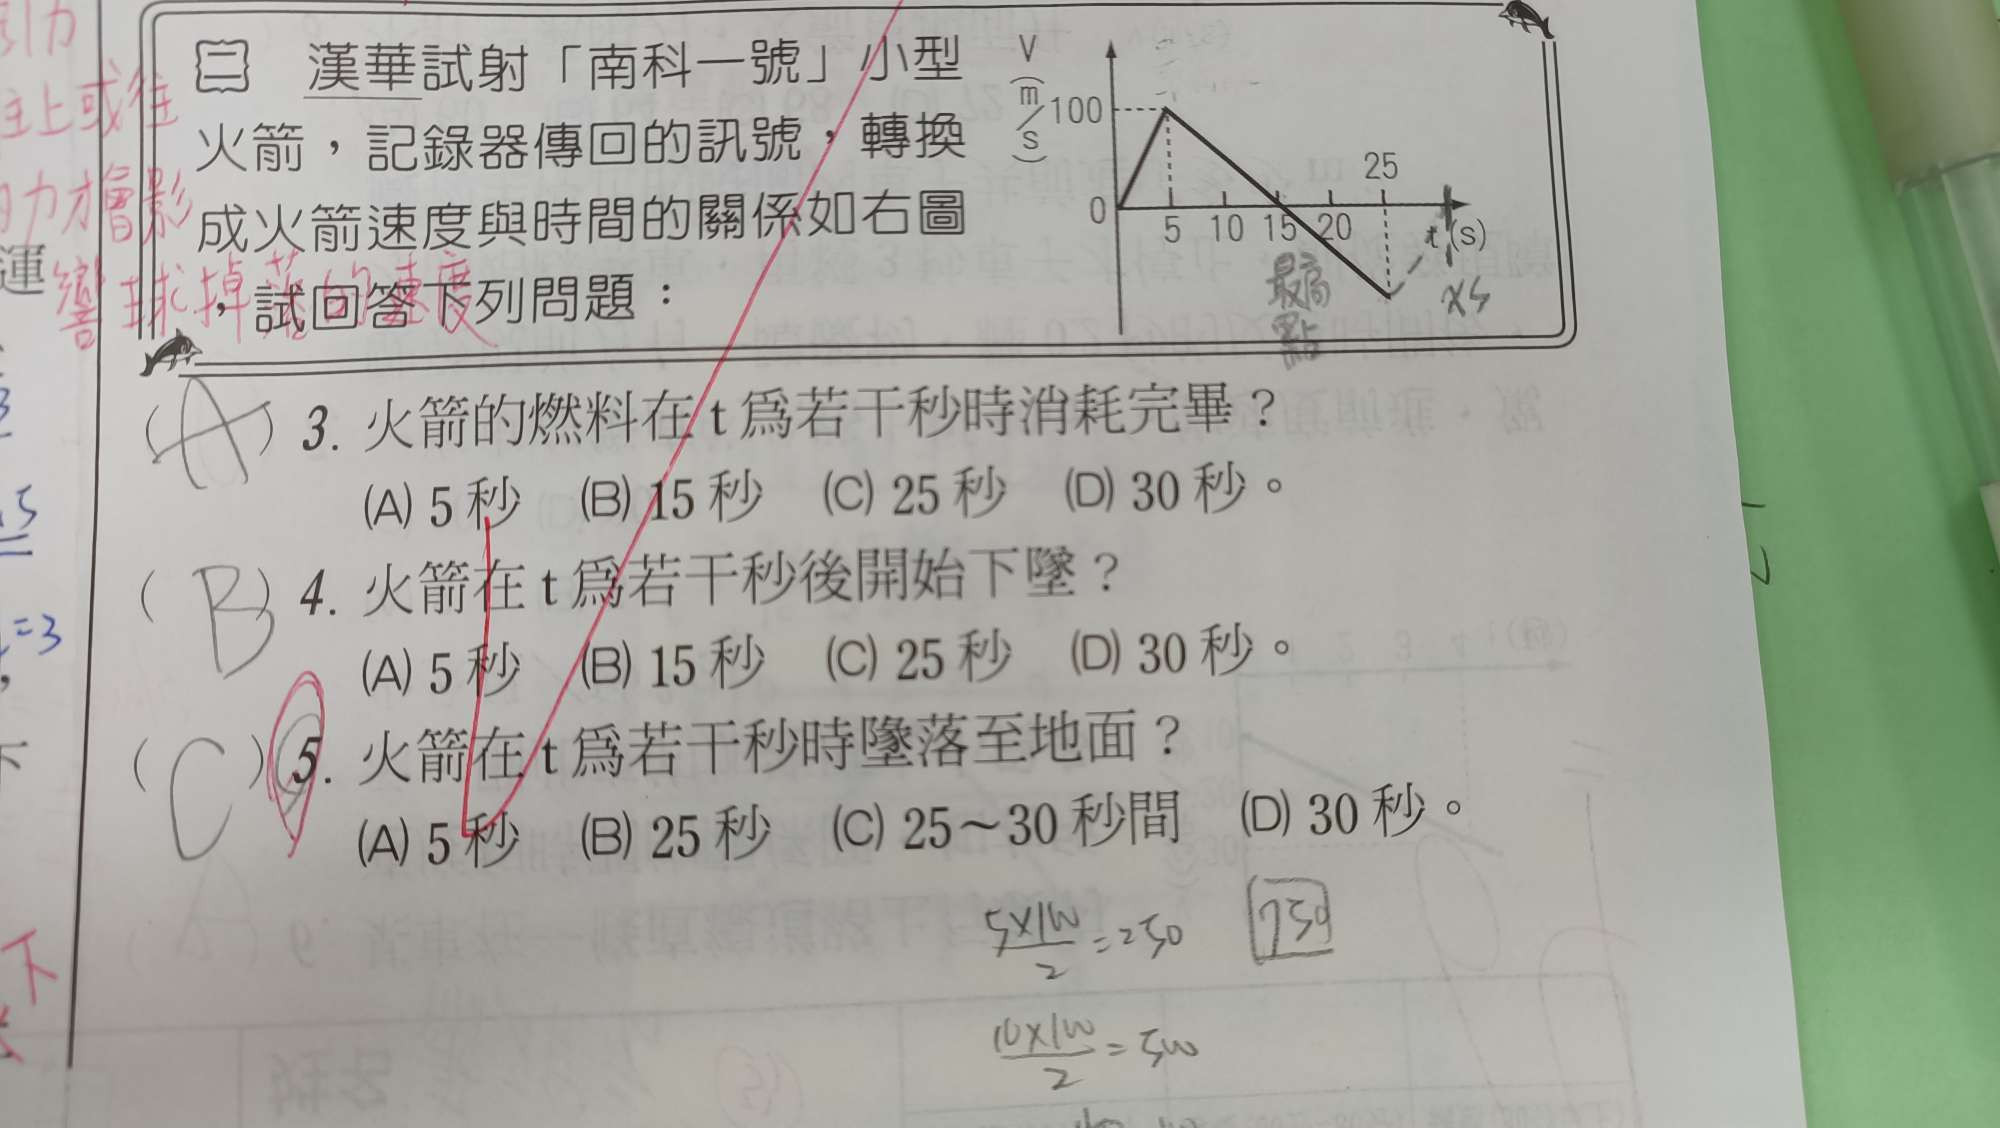 引力
往上或往
力才會影
響球掉落的速度
運
二 漢華試射「南科一號」小型
火箭，記錄器傳回的訊號，轉換
成火箭速度與時間的關係如右圖
，試回答下列問題：
V
(m/s)
100
0
5 10 15 20
25
t (s)
最高
點
(A) 3. 火箭的燃料在 t 爲若干秒時消耗完畢？
(A) 5 秒 (B) 15 秒 (C) 25 秒 (D) 30 秒。
(B) 4. 火箭在 t 爲若干秒後開始下墜？
(A) 5 秒 (B) 15 秒 (C) 25 秒 (D) 30 秒。
(C) 5. 火箭在 t 爲若干秒時墬落至地面？
(A) 5 秒 (B) 25 秒 (C) 25～30 秒間 (D) 30 秒。
5×100/2=250 750
10×100/2=500
=3
下